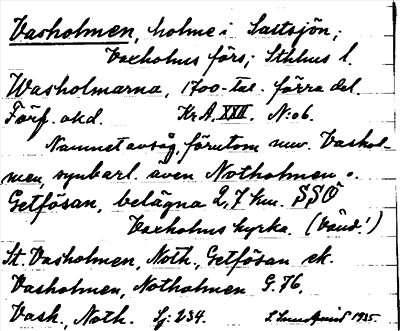 Vasholmen, holme i Saltsjön,
Vaxholms förs; Sthlms l.
Washolmarna, 1700-tal. förra del.
Förf. okd. Kr A XXII. N:o 6.
Namnet avsåg, förutom nuv. Vashol-
men, synbarl. även Notholmen o.
Getfösan, belägna 2,7 km. SSÖ
Vaxholms kyrka. (Vänd!)
St. Vasholmen, Noth., Getfösan ek.
Vasholmen, Notholmen G. 76.
Vash., Noth. Sj: 234. 1935